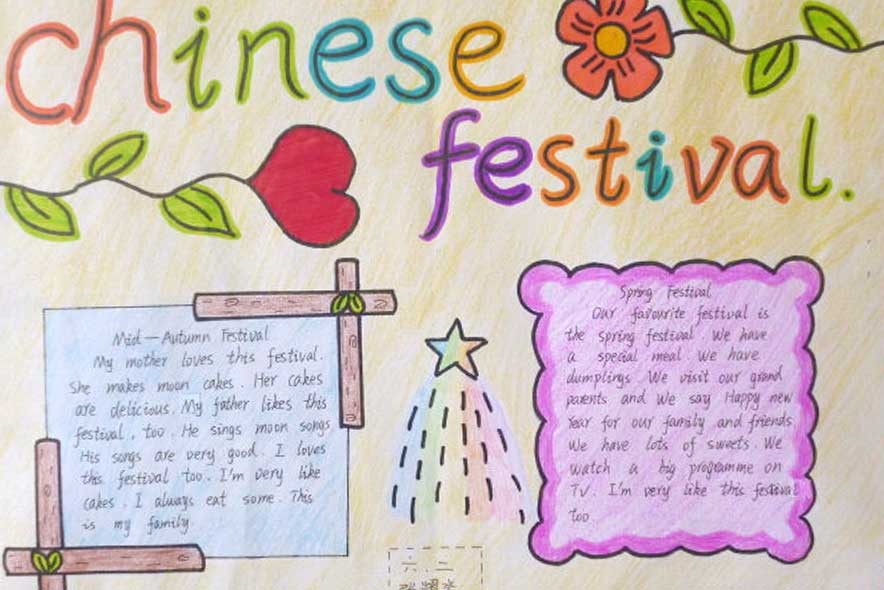 chinese
festival.
Mid-Autumn Festival
My mother loves this festival.
She makes moon cakes. Her cakes
are delicious. My father likes this
festival, too. He sings moon songs
His songs are very good. I loves
this festival too. I'm very like
cakes. I always eat some. This
is my family
Spring Festival
Our favourite festival is
the spring festival. We have
a special meal. We have
dumplings. We visit our grand
parents and we say Happy new
Year for our family and friends
We have lots of sweets. We
watch a big programme on
TV. I'm very like this festival
too
六.二